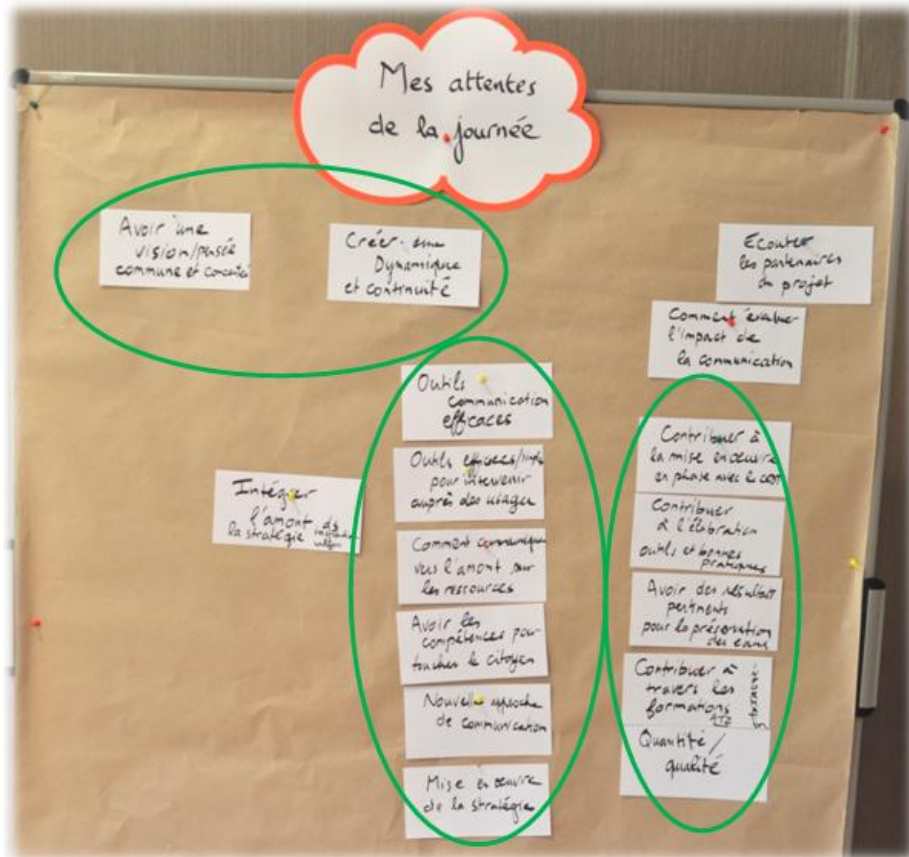 Mes attentes
de la journée
Avoir une
vision/pensée
commune et
Créer une
Dynamique
et continuité
Ecouter
les partenaires
du projet
Comment évaluer
l'impact de
la communication
Outils
communication
efficaces
Outils efficaces/
pour intervenir
auprès des usagers
Comment communiquer
vers l'amont sur
les ressources
Avoir les
compétences pour
toucher le citoyen
Nouvelle approche
de communication
Mise en œuvre
de la stratégie
Intégrer
l'amont ds
la stratégie
Contribuer à
la mise en œuvre
en phase avec le
Contribuer
à l'élaboration
outils et bonnes
pratiques
Avoir des résultats
pertinents
pour la préservation
des eaux
Contribuer à
travers les
formations
Quantité/
qualité